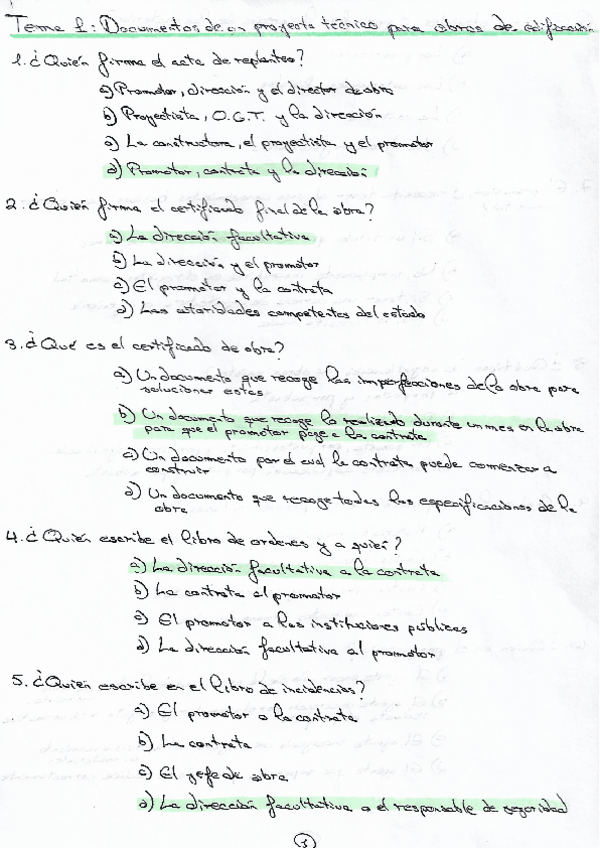 Tema 1: Documentos de un proyecto técnico para obras de edificación
1. ¿Quién firma el acta de replanteo?
a) Promotor, dirección y el director de obra
b) Proyectista, O.C.T. y la dirección
c) La constructora, el proyectista y el promotor
d) Promotor, contrata y la dirección
2. ¿Quién firma el certificado final de la obra?
a) La dirección facultativa
b) La dirección y el promotor
c) El promotor y la contrata
d) Las autoridades competentes del estado
3. ¿Qué es el certificado de obra?
a) Un documento que recoge las imperfecciones de la obra para
solucionar estas
b) Un documento que recoge lo realizado durante un mes en la obra
para que el promotor page a la contrata
c) Un documento por el cual la contrata puede comenzar a
construir
d) Un documento que recoge todas las especificaciones de la
obra
4. ¿Quién escribe el libro de ordenes y a quién?
a) La dirección facultativa a la contrata
b) La contrata al promotor
c) El promotor a las instituciones públicas
d) La dirección facultativa al promotor
5. ¿Quién escribe en el libro de incidencias?
a) El promotor o la contrata
b) La contrata
c) El jefe de obra
d) La dirección facultativa o el responsable de seguridad